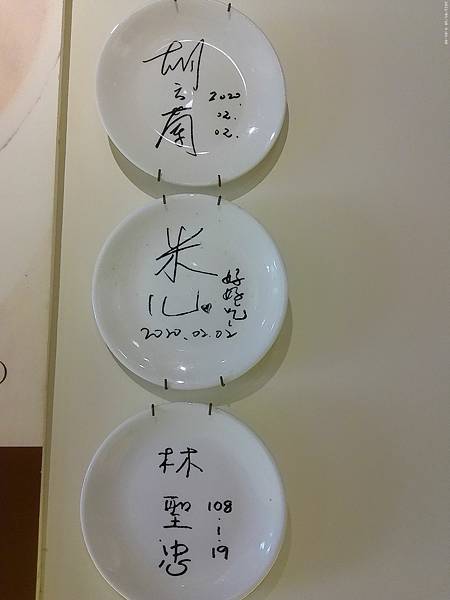 胡
云
2020.
02.
02.
米
好好吃!
2020.02.02
林
聖
忠
108
.1
.19